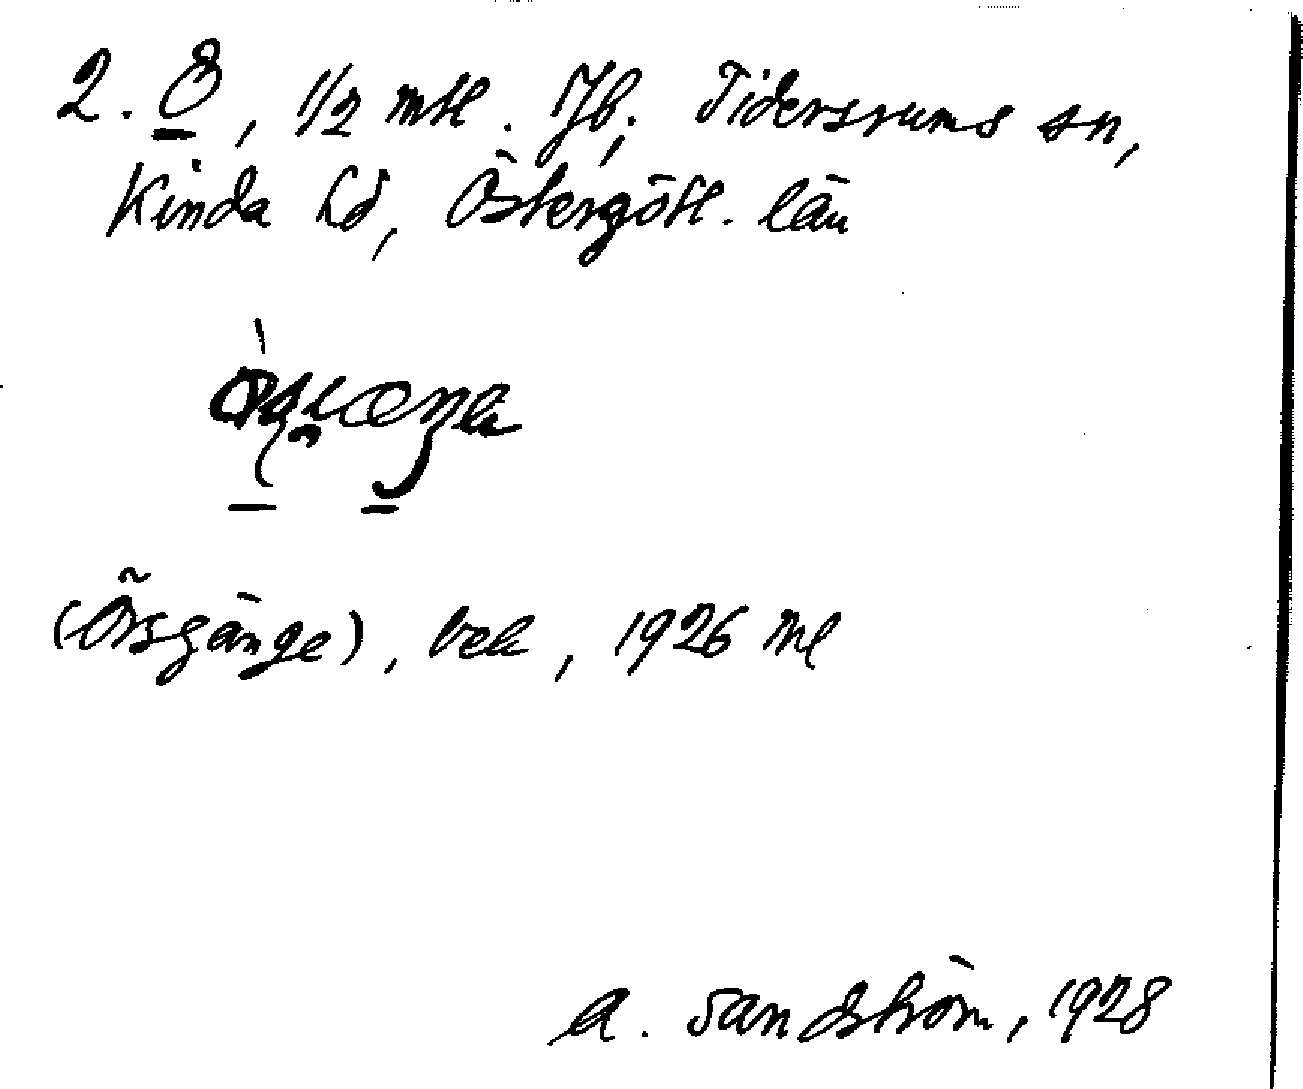 2. Ö, 1/2 mtl. Jb; Tidersrums sn,
Kinda hd, Östergötl. län
(Örsgänge), bek, 1926 ml
A. Sandström, 1928